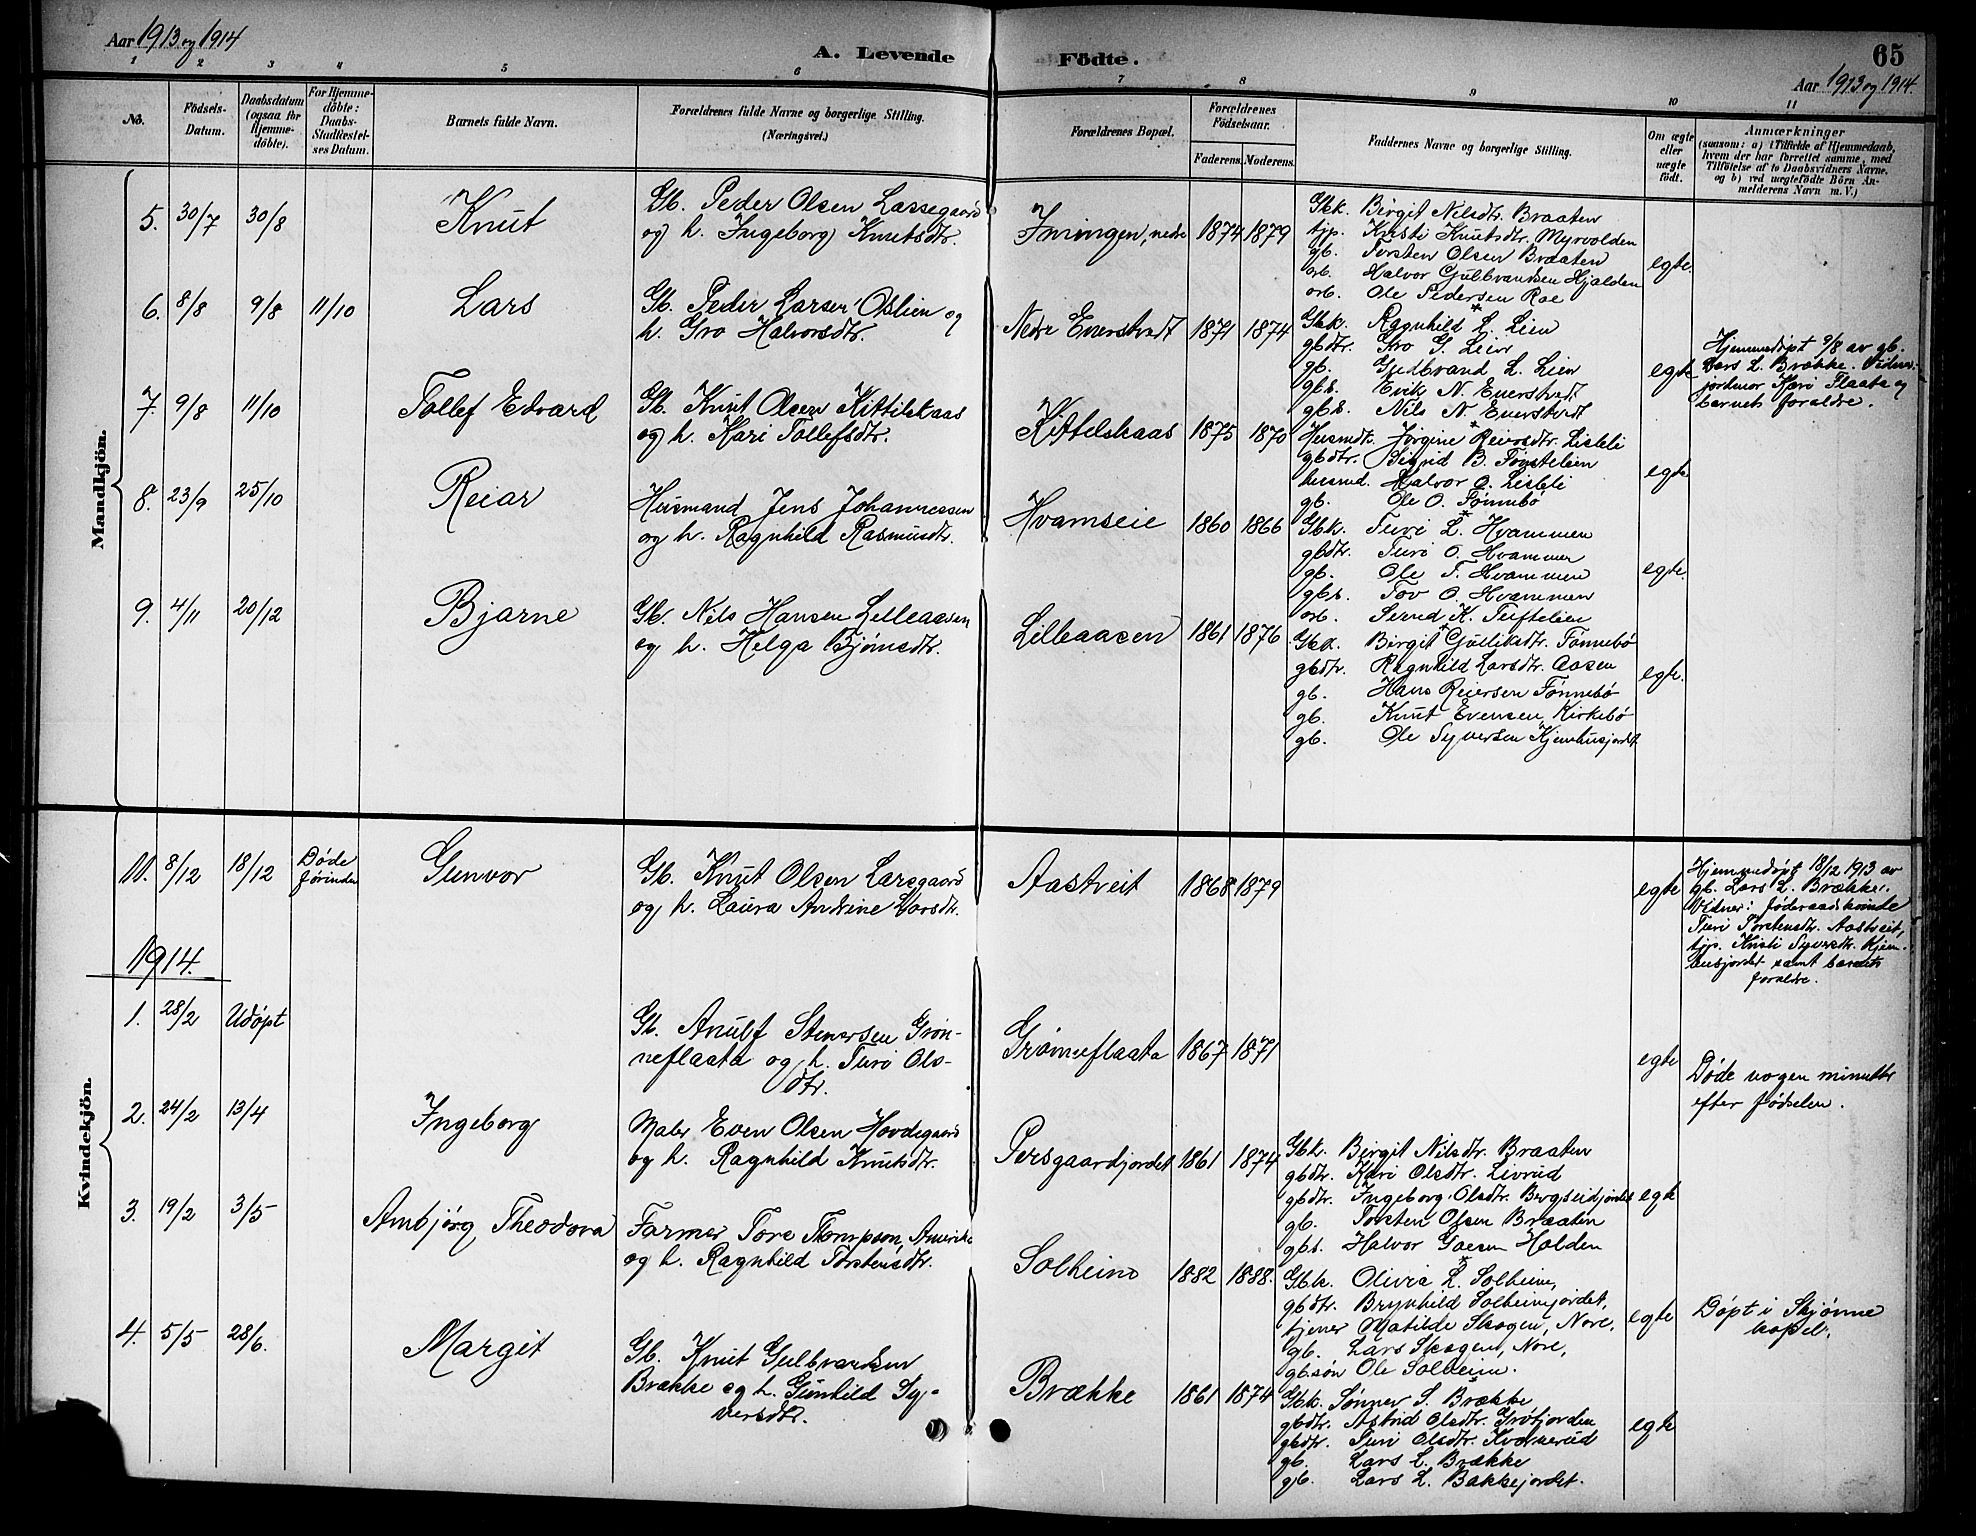 Aar 1913 og 1914
A. Levende Födte.
65
Aar 1913 og 1914.
1 2 3 4 5 6 7 8 9 10 11
No.
Födsels-Datum.
Daabsdatum (ogsaa for Hjemme-döbte).
For Hjemme-döbte: Daabs-Stadfæstel-ses Datum.
Barnets fulde Navn.
Forældrenes fulde Navne og borgerlige Stilling. (Næringsvei.)
Forældrenes Bopæl.
Forældrenes Födselsaar.
Faderens. Moderens.
Faddernes Navne og borgerlige Stilling.
Om ægte eller uægte födt.
Anmærkninger
(saasom: a) i Tilfælde af Hjemmedaab, hvem der har forrettet samme, med Tilföielse af to Daabsvidners Navne. og b) ved uægtefödte Börn An-melderens Navn m. V.)
Mandkjön.
5. 30/7 30/8 Knut
Gb. Peder Olsen Lassegaard
og h. Ingeborg Knutsdtr.
Imingen, nedre 1874 1879
Gbk. Birgit Nilsdtr. Braaten
tjp. Kristi Knutsdtr. Myrvolden
gb. Torsten Olsen Braaten
arb. Halvor Gulbrandsen Hjalden
arb. Ole Pedersen Roe
egte.
6. 8/8 9/8 11/10 Lars
Gb. Peder Larsen Oslien og
h. Gro Halvorsdtr.
Nedre Enerstvedt 1871 1874
Gbk. Ragnhild L. Lien
gbdtr. Gro G. Lien
gb. Gudbrand L. Lien
gbs. Erik N. Enerstvedt
gbs. Nils N. Enerstvedt
egte
Hjemmedöpt 9/8 av gb.
Lars L. Brække. Vidner:
jordmor Kari Flaata og
barnets foraldre.
7. 9/8 11/10 Tollef Edvard
Gb. Knut Olsen Kittilskaas
og h. Kari Tollefsdtr.
Kittelskaas 1875 1870
Husmdk. Jørgine Reiersdtr. Lisleli
gbdtr. Sigrid B. Tøvstelien
husmd. Halvor O. Lisleli
gb. Ole O. Fønnebø
egte
8. 23/9 25/10 Reiar
Husmand Jens Johannessen
og h. Ragnhild Rasmusdtr.
Hvamseie 1860 1866
Gbk. Turi L. Hvammen
gbdtr. Turi O. Hvammen
gb. Ole T. Hvammen
gbs. Tov O. Hvammen
arb. Svend K. Tuftelien
egte.
9. 4/11 20/12 Bjarne
Gb. Nils Hansen Lilleaasen
og h. Helga Bjørnsdtr.
Lilleaasen 1861 1876
Gbk. Birgit Gulliksdtr. Fønnebø
gbdtr. Ragnhild Larsdtr. Aasen
gb. Hans Reiersen Fønnebø
gb. Knut Evensen Kirkebø
gb. Ole Syversen Kjemhusjordet
egte.
Kvindekjön.
11. 8/12 18/12 Døde forinden Gunvor
Gb. Knut Olsen Larsgaard
og h. Laura Andrine Larsdtr.
Aastveit 1868 1879
egte
Hjemmedöpt 18/12 1913 av
gb. Lars L. Brække.
Vidner: føderaadskvinde
Turi Torstensdtr. Aastveit,
tjp. Kristi Syversdtr. Kjem-
husjordet samt barnets
foraldre.
1914.
1. 28/2 Udöpt
Gb. Anulf Stenersen Grøn-
neflaata og h. Turi Ols-
dtr.
Grønneflaata 1867 1871
egte
Døde nogen minutter
efter fødselen.
2. 24/2 13/4 Ingeborg
Maler Even Olsen Hovdegaard
og h. Ragnhild Knutsdtr.
Persgaardjordet 1861 1874
Gbk. Birgit Nilsdtr. Braaten
gbdtr. Kari Olsdtr. Livrud
gbdtr. Ingeborg Olsdtr. Bergseidjordet
gb. Torsten Olsen Braaten
gbs. Halvor Goesen Holden
egte
3. 19/2 3/5 Ambjørg Theodora
Farmer Tore Thompson, Amerika
og h. Ragnhild Torstensdtr.
Solheim 1882 1888.
Gbk. Olivia L. Solheim,
gbdtr. Brynhild Solheimjordet,
tjener Matilde Skogen, Nore,
gb. Lars Skogen, Nore,
gbsøn Ole Solheim.
egte
Döpt i Skjønne
kapel.
4. 5/5 28/6. Margit
Gb. Knut Gulbrandsen
Brække og h. Gunhild Sy-
versdtr.
Brække 1861 1874
Gbk. Sønner S. Brække
gbdtr. Astrid Olsdtr. Grøtjorden
gbdtr. Turi Olsdtr. Kvernerud
gb. Lars L. Brække
gb. Lars L. Bakkejordet.
egte